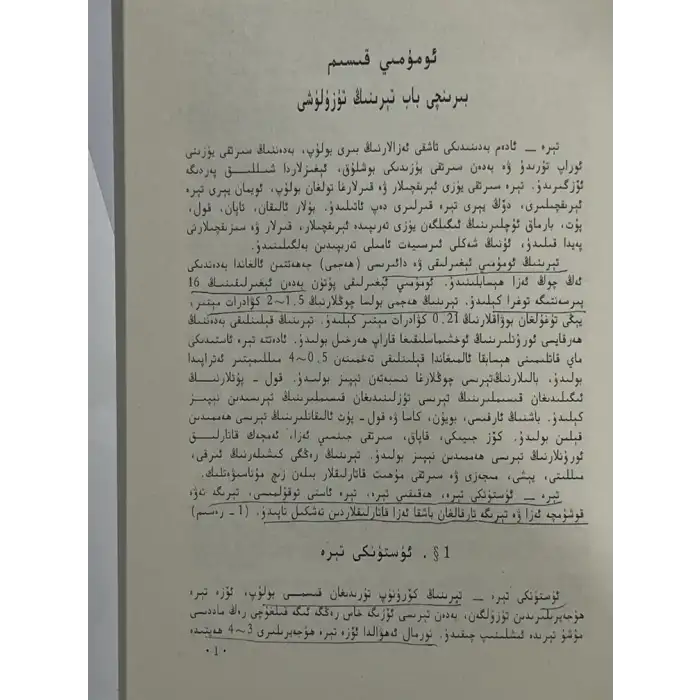 ئومۇمىي قىسىم
بىرىنچى باب تېرىنىڭ تۈزۈلۈشى
تېرە — ئادەم بەدىنىدىكى تاشقى ئەزالارنىڭ بىرى بولۇپ، بەدەننىڭ سىرتقى يۈزىنى
ئوراپ تۇرىدۇ ۋە بەدەن سىرتقى يۈزىدىكى بوشلۇق، ئېغىزلاردا شىللىق پەردىگە
ئۆزگىرىدۇ. تېرە سىرتقى يۈزى ئېرىقچىلار ۋە قىرلارغا تولغان بولۇپ، ئويمان يېرى تېرە
ئېرىقچىلىرى، دۆڭ يېرى تېرە قىرلىرى دەپ ئاتىلىدۇ. بۇلار ئالىقان، تاپان، قول،
پۇت، بارماق ئۇچلىرىنىڭ ئىگىلگەن يۈزى تەرىپىدە ئېرىقچىلار، قىرلار ۋە سىزىقچىلارنى
پەيدا قىلىدۇ، ئۇنىڭ شەكلى ئىرسىيەت ئامىلى تەرىپىدىن بەلگىلىنىدۇ.
تېرىنىڭ ئومۇمىي ئېغىرلىقى ۋە دائىرىسى (ھەجمى) جەھەتتىن ئالغاندا بەدەندىكى
ئەڭ چوڭ ئەزا ھېسابلىنىدۇ. ئومۇمىي ئېغىرلىقى پۈتۈن بەدەن ئېغىرلىقىنىڭ 16
پىرسەنتىگە توغرا كېلىدۇ. تېرىنىڭ ھەجمى بولسا چوڭلارنىڭ 1.5~2 كۋادرات مېتىر،
يېڭى تۇغۇلغان بوۋاقلارنىڭ 0.21 كۋادرات مېتىر كېلىدۇ. تېرىنىڭ قېلىنلىقى بەدەننىڭ
ھەرقايسى ئورۇنلىرىنىڭ ئوخشىماسلىقىغا قاراپ ھەرخىل بولىدۇ. ئادەتتە تېرە ئاستىدىكى
ماي قاتلىمىنى ھېسابقا ئالمىغاندا قېلىنلىقى تەخمىنەن 0.5~4 مىللىمېتىر ئەتراپىدا
بولىدۇ، بالىلارنىڭ تېرىسى چوڭلارغا نىسبەتەن نېپىز بولىدۇ. قول - پۇتلارنىڭ
ئىگىلىدىغان قىسىملىرىنىڭ تېرىسى تۈزلىنىدىغان قىسىملىرىنىڭ تېرىسىدىن نېپىز
كېلىدۇ. باشنىڭ ئارقىسى، بويۇن، كاسا ۋە قول - پۇت ئالىقانلىرىنىڭ تېرىسى ھەممىدىن
قېلىن بولىدۇ. كۆز جىيىكى، قاپاق، سىرتقى جىنسىي ئەزا، ئەمچەك قاتارلىق
ئورۇنلارنىڭ تېرىسى ھەممىدىن نېپىز بولىدۇ. تېرىنىڭ رەڭگى كىشىلەرنىڭ ئىرقى،
مىللىتى، يېشى، مىجەزى ۋە سىرتقى مۇھىت قاتارلىقلار بىلەن زىچ مۇناسىۋەتلىك.
تېرە — ئۈستۈنكى تېرە، ھەقىقىي تېرە، تېرە ئاستى توقۇلمىسى، تېرىگە تەۋە
قوشۇمچە ئەزا ۋە تېرىگە تارقالغان باشقا ئەزا قاتارلىقلاردىن تەشكىل تاپىدۇ. (1 - رەسىم)
§1. ئۈستۈنكى تېرە
ئۈستۈنكى تېرە — تېرىنىڭ كۆرۈنۈپ تۇرىدىغان قىسمى بولۇپ، ئۆزە تېرە
ھۈجەيرىلىرىدىن تۈزۈلگەن، بەدەن تېرىسى ئۆزىگە خاس رەڭگە ئىگە قىلغۇچى رەڭ ماددىسى
مۇشۇ تېرىدە ئىشلىنىپ چىقىدۇ. نورمال ئەھۋالدا ئۆزە تېرە ھۈجەيرىلىرى 3~4 ھەپتىدە
· 1 ·